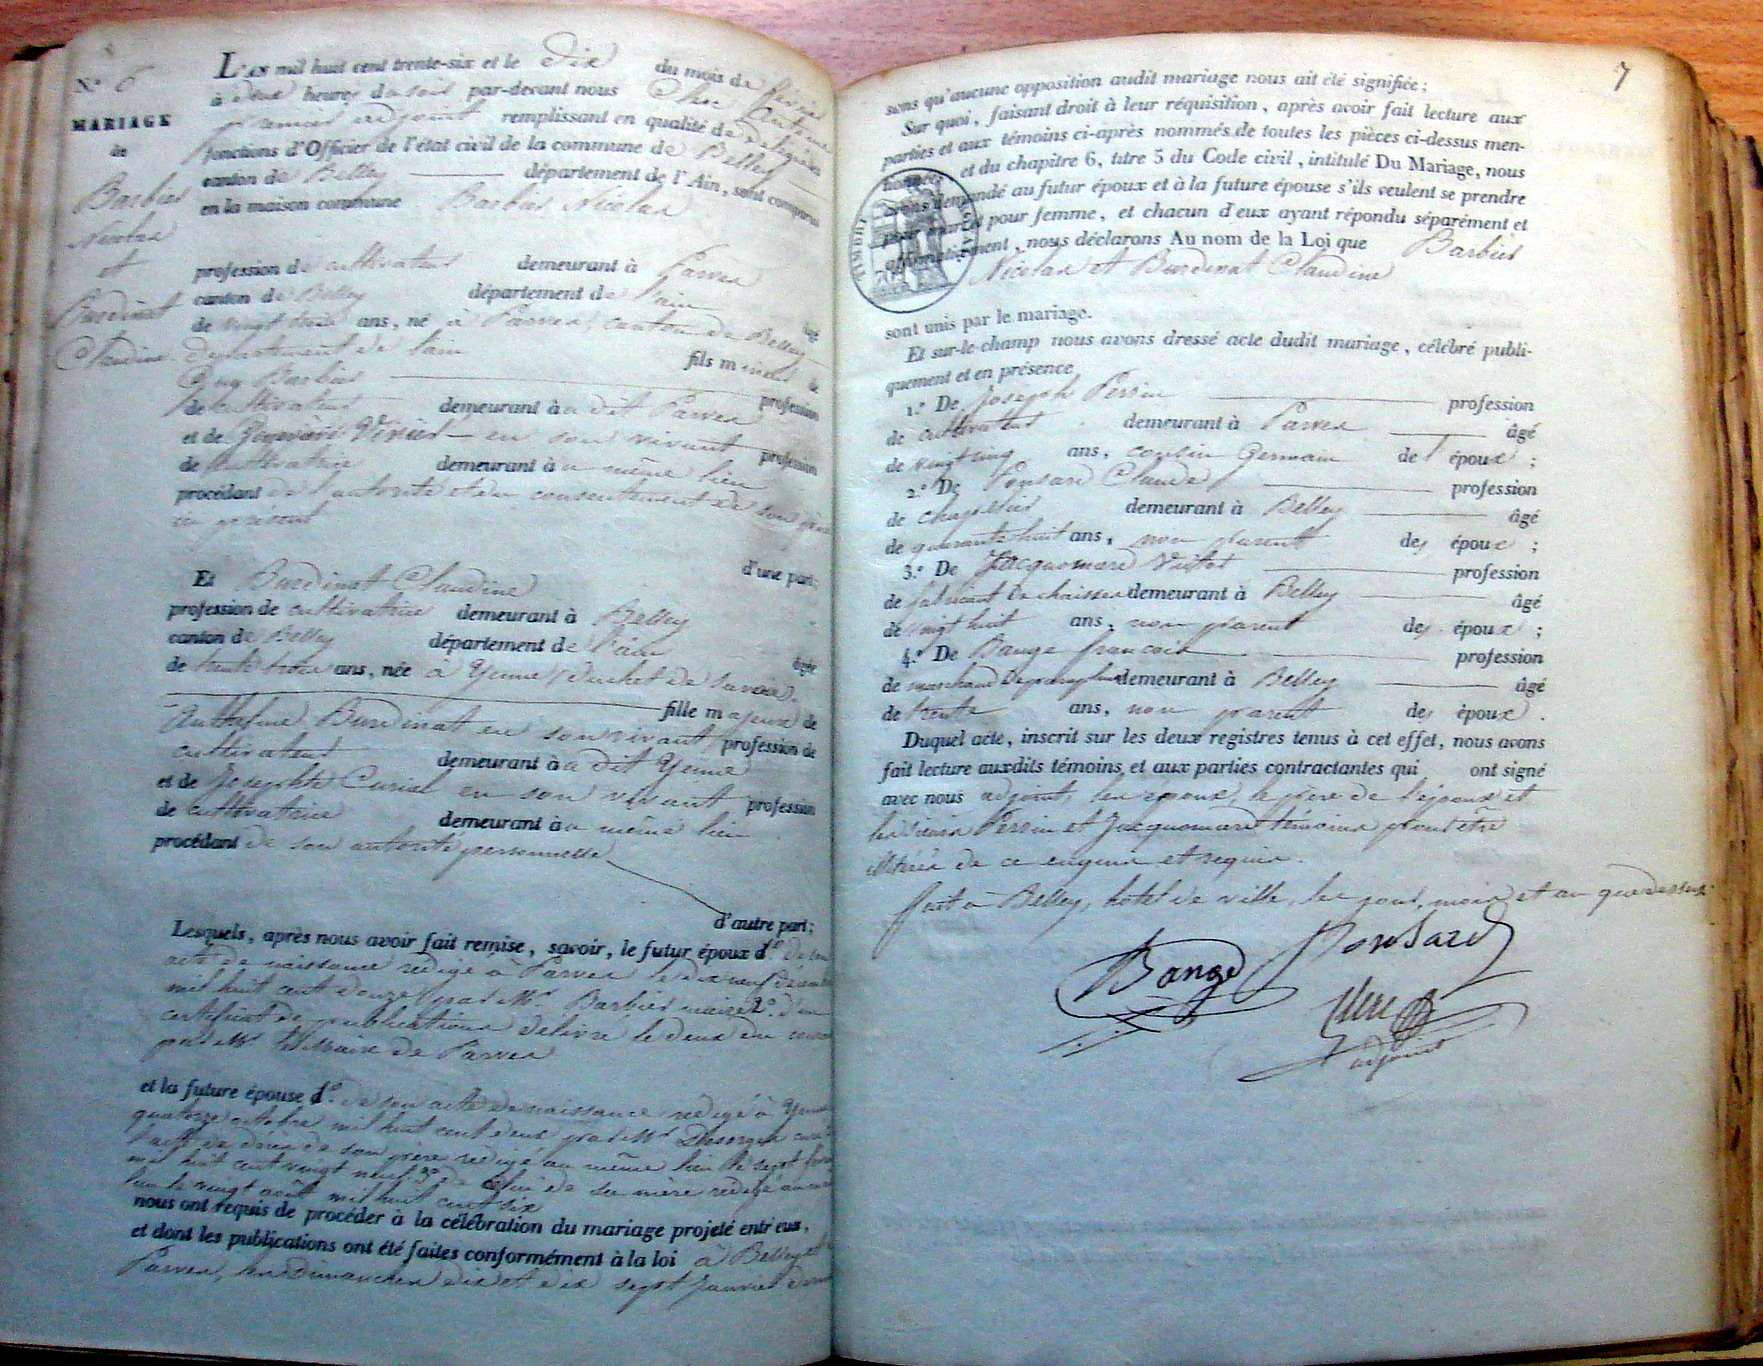 N.° 6
MARIAGE
de
Barbier
Nicolas
et
Burdinat
Claudine
L'AN mil huit cent trente-six et le dix du mois de février
à deux heures du soir par-devant nous Clerc Antoine
premier adjoint remplissant en qualité de délégué les
fonctions d'Officier de l'état civil de la commune de Belley
canton de Belley département de l'Ain, sont comparus
en la maison commune Barbier Nicolas
profession de cultivateur demeurant à Parves
canton de Belley département de l'ain âgé
de vingt trois ans, né à Parves, canton de Belley
département de l'ain fils mineur de
Guy Barbier profession
de cultivateur demeurant à a dit Parves
et de Genevieve en son vivant profession
de cultivatrice demeurant à u même lieu
procédant de l'autorité et du consentement de son père
ici présent
d'une part;
Et Burdinat Claudine
profession de cultivatrice demeurant à Belley
canton de Belley département de l'ain âgée
de trente trois ans, née à Yenne (duchet de savoie)
fille majeure de
Anthelme Burdinat en son vivant profession de
cultivateur demeurant à a dit Yenne
et de Josephte Curial en son vivant profession
de cultivatrice demeurant à u même lieu
procédant de son autorité personnelle
d'autre part;
Lesquels, après nous avoir fait remise, savoir, le futur époux 1.° de son
acte de naissance redigé à Parves le dix neuf décembre
mil huit cent douze par Mr. Barbier maire 2.° d'un
certificat de publications delivré le deux du courant
par Mr. le Maire de Parves
et la future épouse 1.° de son acte de naissance redigé à Yenne
quatorze octobre mil huit cent deux par Mr. curé
l'acte de décès de son père redigé au même lieu le sept
mil huit cent vingt neuf 3.° de celui de sa mère redigé au même
lieu le vingt août mil huit cent six
nous ont requis de procéder à la célébration du mariage projeté entr'eux,
et dont les publications ont été faites conformément à la loi à Belley et
Parves, les Dimanches dix et dix sept janvier dernier
7
sons qu'aucune opposition audit mariage nous ait été signifiée;
Sur quoi, faisant droit à leur réquisition, après avoir fait lecture aux
parties et aux témoins ci-après nommés de toutes les pièces ci-dessus men-
tionnées et du chapitre 6, titre 5 du Code civil, intitulé Du Mariage, nous
avons demandé au futur époux et à la future épouse s'ils veulent se prendre
pour mari et pour femme, et chacun d'eux ayant répondu séparément et
affirmativement, nous déclarons Au nom de la Loi que Barbier
Nicolas et Burdinat Claudine
TIMBRE
sont unis par le mariage.
Et sur-le-champ nous avons dressé acte dudit mariage, célébré publi-
quement et en présence
1.° De Joseph Perrin profession
de cultivateur demeurant à Parves âgé
de vingt cinq ans, cousin Germain de l'époux;
2.° De Ponsard Claude profession
de chapelier demeurant à Belley âgé
de quarante huit ans, non parent des époux;
3.° De Jacquemard profession
de fabricant de chaises demeurant à Belley âgé
de vingt huit ans, non parent des époux;
4.° De Bange francois profession
de marchand demeurant à Belley âgé
de trente ans, non parent des époux.
Duquel acte, inscrit sur les deux registres tenus à cet effet, nous avons
fait lecture auxdits témoins et aux parties contractantes qui ont signé
avec nous adjoint, les époux, le père de l'époux et
les sieurs Perrin et Jacquemard témoins pour être
illitérés de ce enquis et requis.
fait à Belley, hôtel de ville, les jour, mois et an que dessus.
Bange Ponsard
Clerc
adjoint